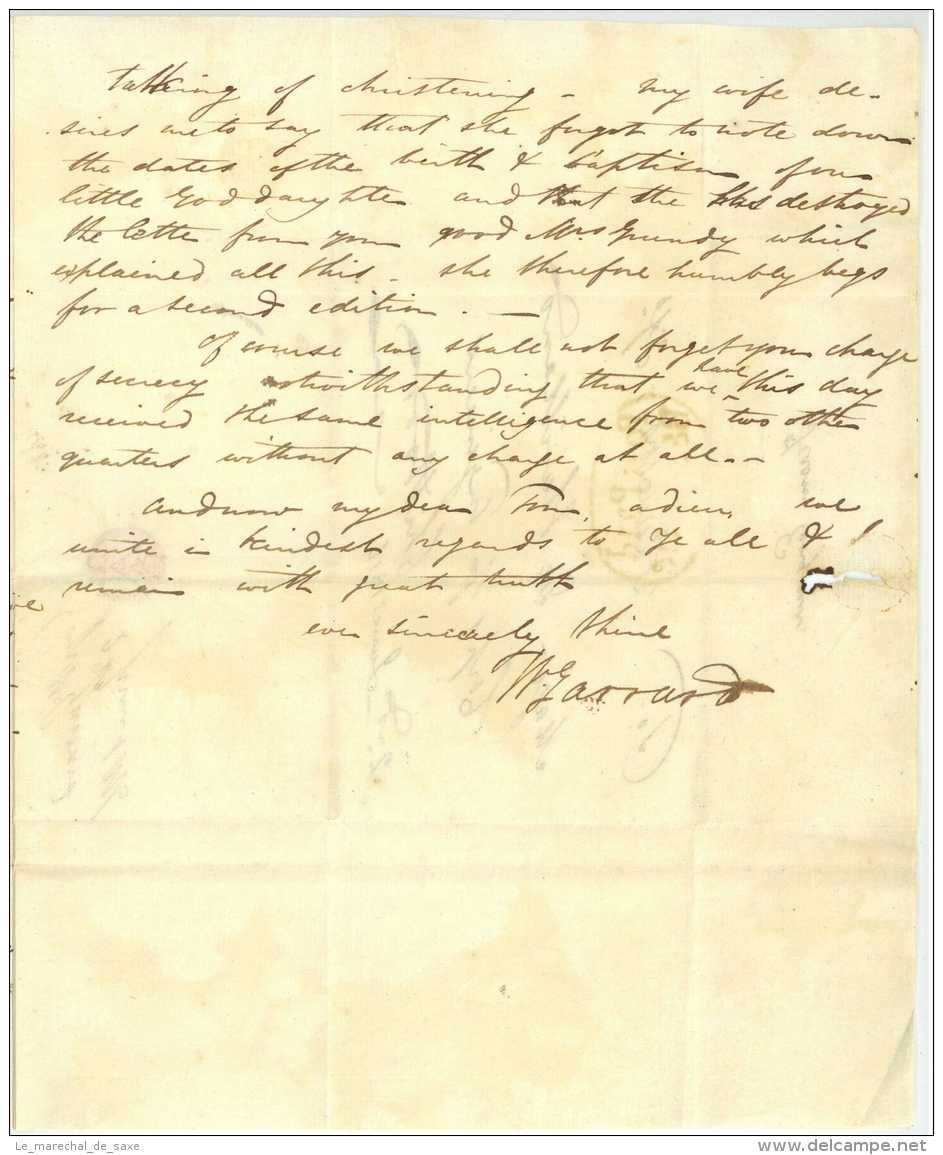 talking of christening - my wife de-
sires me to say that she forgot to note down
the dates of the birth & baptism of our
little God daughter and that she has destroyed
the letter from your good Mrs Grundy which
explained all this - she therefore humbly begs
for a second edition . -
Of course we shall not forget your charge
of secrecy notwithstanding that we have this day
received the same intelligence from two other
quarters without any charge at all. -
and now my dear Tom, adieu, we
unite in kindest regards to Ye all &
remain with great truth
ever sincerely thine
Wm Garrard
Le_marechal_de_saxe
www.delcampe.net